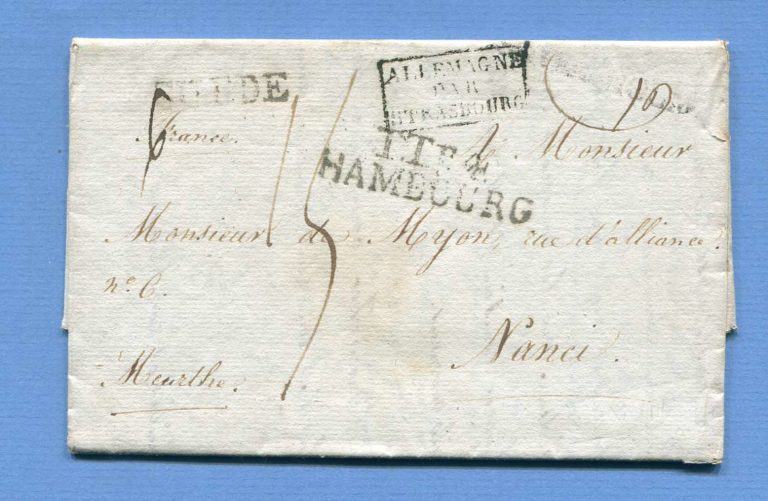 SUEDE
ALLEMAGNE
PAR
STRASBOURG
6
France.
15
10
TT Fco
HAMBOURG
à Monsieur
Monsieur de Myon, rue d'alliance.
no 6.
Nanci.
Meurthe.